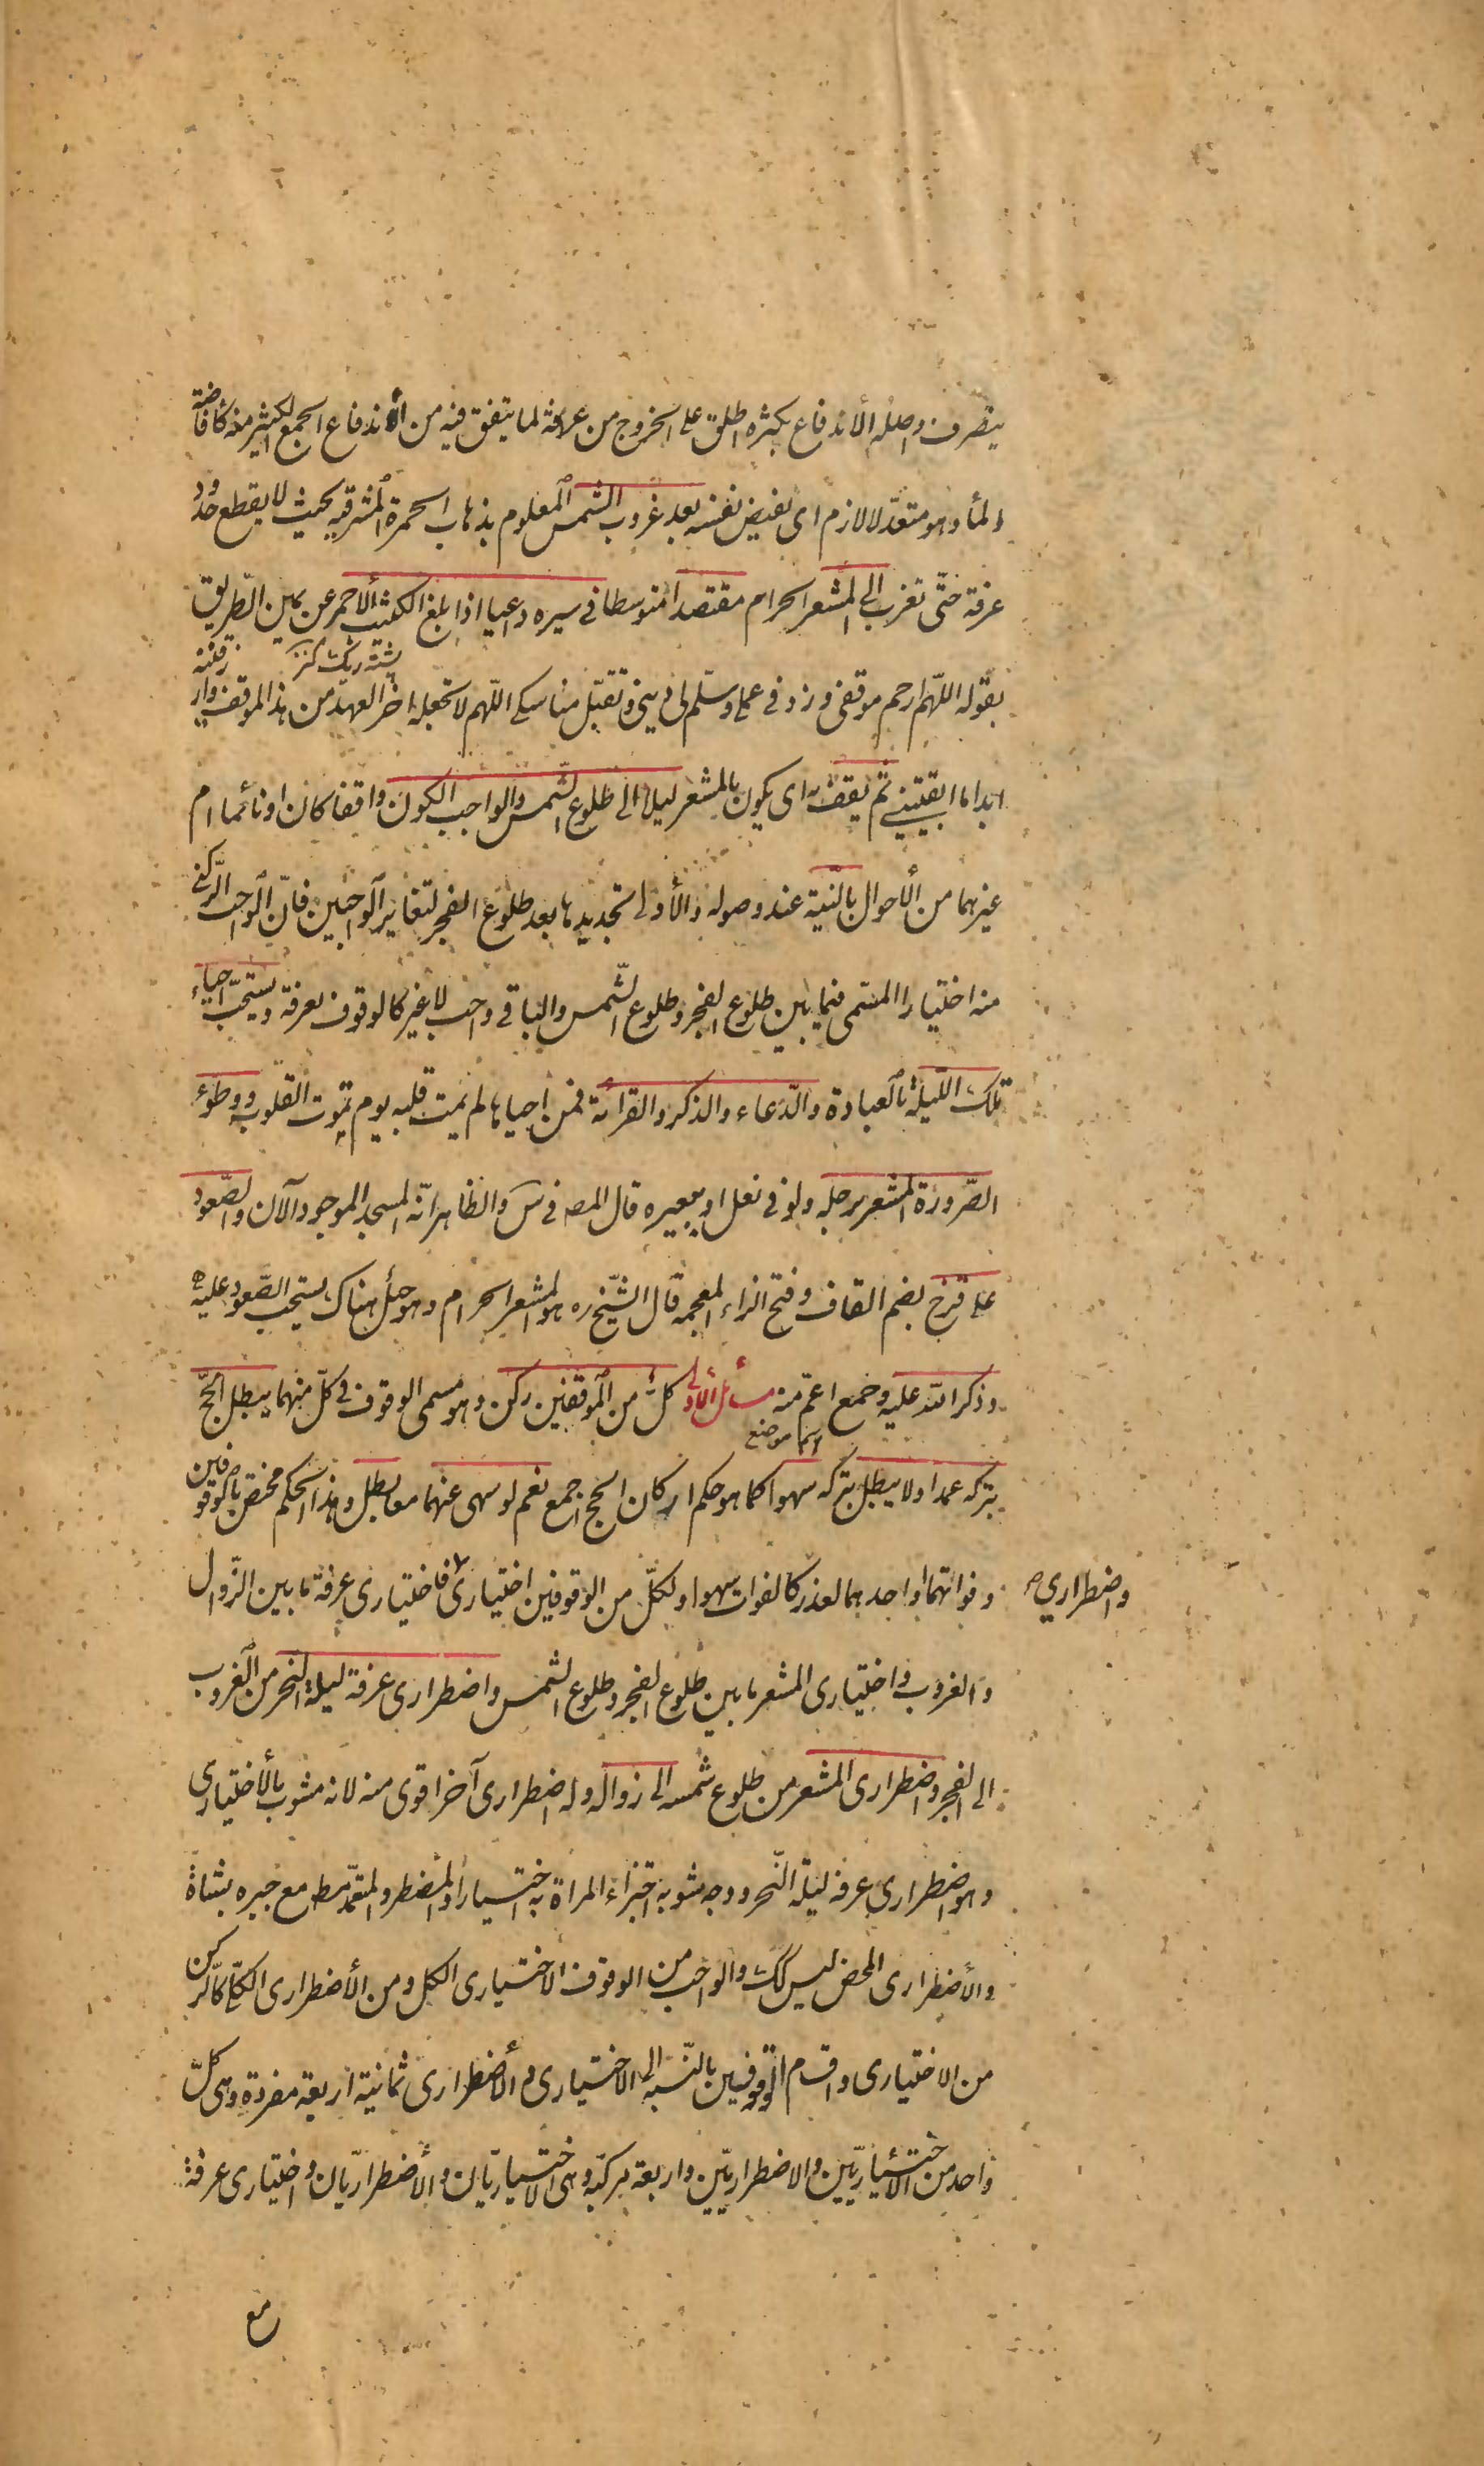 ينصرف واصله الأندفاع بكثرة اطلق على الخروج من عرفة لما يتفق فيه من اندفاع الجمع الكثير منه كافاضة
الماء وهو متعد لا لازم اى يفيض نفسه بعد غروب الشمس المعلوم بذهاب الحمرة المشرقيه بحيث لا يقطع حدود
عرفة حتى تغرب الى المشعر الحرام مقتصدا متوسطا في سيره داعيا اذا بلغ الكثيب الاحمر عن يمين الطريق
پشته ريگ
بقوله اللهم ارحم موقفى وزد في عملى وسلم لى دينى وتقبل مناسكى اللهم لا تجعله اخر العهد من هذا الموقف وارزقنيه
ابدا ما ابقيتنى ثم يقف به اى يكون بالمشعر ليلا الى طلوع الشمس والواجب الكون واقفا كان او نائما ام
غيرهما من الأحوال بالنية عند وصوله والأولى تجديدها بعد طلوع الفجر لتغاير الواجبين فان الواجب الركنى
منه اختيارا المسمى فيما بين طلوع الفجر وطلوع الشمس والباقى واجب لا غير كالوقوف بعرفة ويستحب احياء
تلك الليلة بالعبادة والدعاء والذكر والقرائة فمن احياها لم يمت قلبه يوم تموت القلوب ووطؤ
الصرورة المشعر برجله ولو في نعل او ببعيره قال المصـ فى س والظاهر انه المسجد الموجود الآن والصعود
على قزح بضم القاف وفتح الزاء المعجمه قال الشيخ ره هو المشعر الحرام وهو جبل هناك يستحب الصعود عليه
وذكر الله عليه وجمع اعم منه مسائل الأولى كل من الموقفين ركن وهو مسمى الوقوف في كل منهما يبطل الحج
اسم موضع
بتركه عمدا ولا يبطل بتركه سهوا كما هو حكم اركان الحج اجمع نعم لو سهى عنهما معا بطل وهذا الحكم مختص بالوقوفين
وفواتهما او احدهما لعذر كالفوات سهوا ولكل من الوقوفين اختيارى فاختيارى عرفة ما بين الزوال
واضطراري صح
والغروب واختيارى المشعر ما بين طلوع الفجر وطلوع الشمس واضطرارى عرفة ليلة النحر من الغروب
الى الفجر واضطرارى المشعر من طلوع شمسه الى زواله وله اضطرارى آخر اقوى منه لانه مشوب بالأختيارى
وهو اضطرارى عرفة ليلة النحر ووجه شوبه اجتزاء المراة به اختيارا والمضطر والمتعمد مط مع جبره بشاة
والأضطرارى المحض ليس كك والواجب من الوقوف الاختيارى الكل ومن الأضطرارى الكلى كالركن
من الاختيارى واقسام الوقوفين بالنسبه الى الاختيارى والأضطرارى ثمانية اربعة مفردة وهى كل
واحد من الأختياريين والاضطراريين واربعة مركبه وهى الاختياريان والأضطراريان واختيارى عرفة
مع